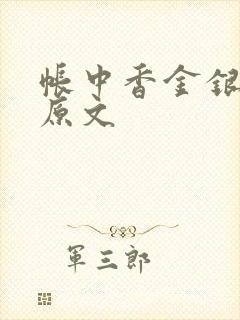 帐中香金银
原文
军三郎